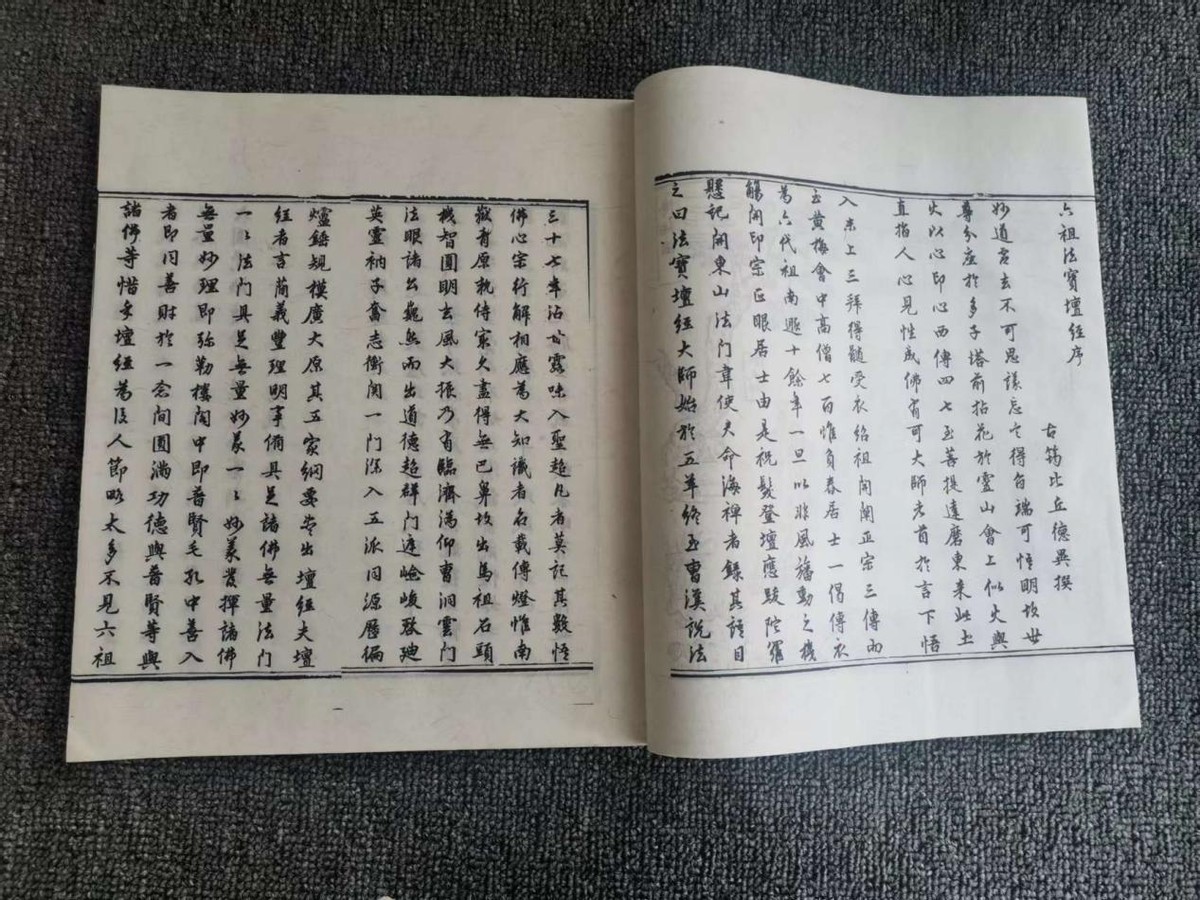 六祖法寳壇經序
古筠比丘德異撰
妙道虛玄不可思議忘言得旨端可悟明故世
尊分座於多子塔前拈花於靈山會上似火與
火以心印心西傳四七至菩提達磨東來此土
直指人心見性成佛有可大師者首於言下悟
入末上三拜得髓受衣紹祖開闡正宗三傳而
至黄梅會中高僧七百惟負舂居士一偈傳衣
為六代祖南遯十餘年一旦以非風旛動之機
觸開印宗正眼居士由是祝髮登壇應跋陀羅
懸記開東山法門韋使君命海禅者錄其語目
之曰法寳壇經大師始於五羊終至曹溪説法
三十七年沾甘露味入聖超凡者莫記其數悟
佛心宗行解相應為大知識者名載傳燈惟南
嶽青原執侍最久盡得無巴鼻故出馬祖石頭
機智圓明玄風大振乃有臨濟溈仰曹洞雲門
法眼諸公巍然而出道德超群門庭嶮峻啟廸
英靈衲子奮志衝關一門深入五派同源歷徧
爐錘規模廣大原其五家綱要盡出壇經夫壇
經者言簡義豐理明事備具足諸佛無量法門
一々法門具足無量妙義一々妙義發揮諸佛
無量妙理即弥勒樓閣中即普賢毛孔中善入
者即同善財於一念間圓滿功德與普賢等與
諸佛等惜乎壇經為後人節略太多不見六祖